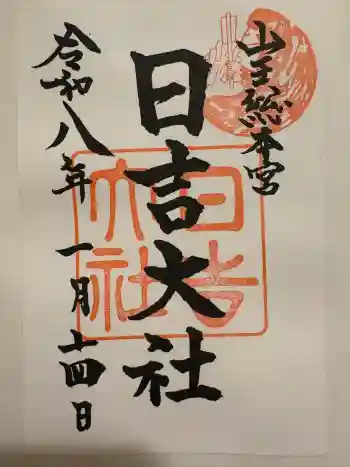 山王総本宮
日吉大社
令和八年 一月十四日
日吉大社